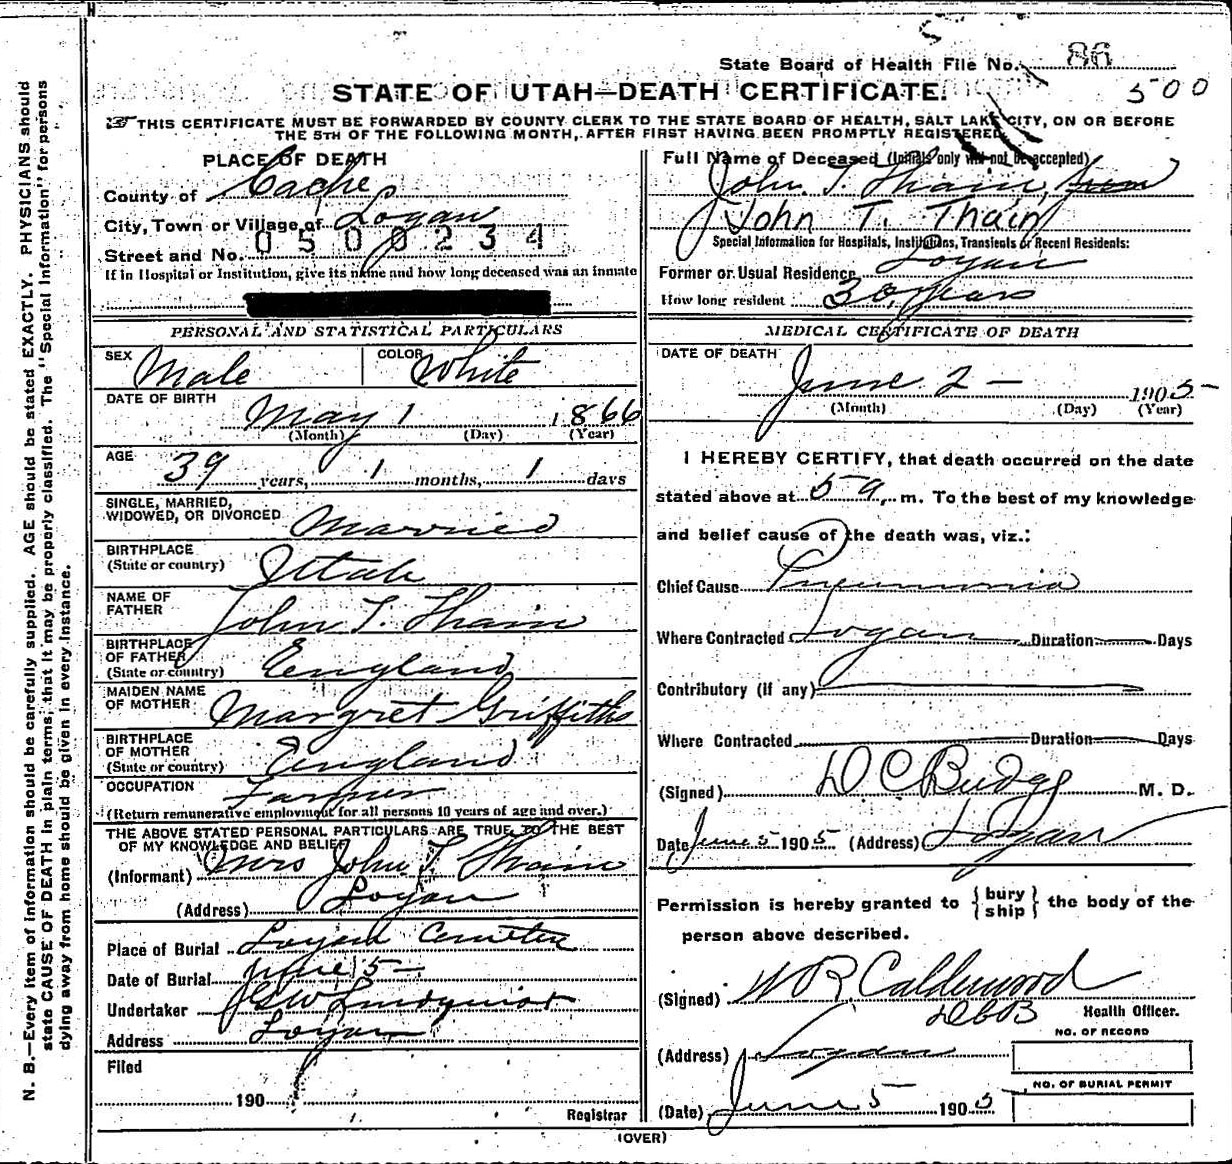 State Board of Health File No. 86
500
STATE OF UTAH—DEATH CERTIFICATE.
THIS CERTIFICATE MUST BE FORWARDED BY COUNTY CLERK TO THE STATE BOARD OF HEALTH, SALT LAKE CITY, ON OR BEFORE
THE 5TH OF THE FOLLOWING MONTH, AFTER FIRST HAVING BEEN PROMPTLY REGISTERED.
PLACE OF DEATH
County of Cache
City, Town or Village of Logan
0500234
Street and No.
If in Hospital or Institution, give its name and how long deceased was an inmate
Full Name of Deceased (Initials only will not be accepted)
John T. Thain,
John T. Thain
Special Information for Hospitals, Institutions, Transients or Recent Residents:
Former or Usual Residence Logan
How long resident 30 years
PERSONAL AND STATISTICAL PARTICULARS
SEX Male
COLOR White
DATE OF BIRTH
May 1 1866
(Month) (Day) (Year)
AGE
39 years, 1 months, 1 days
SINGLE, MARRIED,
WIDOWED, OR DIVORCED Married
BIRTHPLACE
(State or country) Utah
NAME OF
FATHER John T. Thain
BIRTHPLACE
OF FATHER
(State or country) England
MAIDEN NAME
OF MOTHER Margret Griffiths
BIRTHPLACE
OF MOTHER
(State or country) England
OCCUPATION Farmer
(Return remunerative employment for all persons 10 years of age and over.)
THE ABOVE STATED PERSONAL PARTICULARS ARE TRUE TO THE BEST
OF MY KNOWLEDGE AND BELIEF
(Informant) Mrs John T. Thain
(Address) Logan
Place of Burial Logan Cemetery
Date of Burial June 5-
Undertaker Lindquist
Address Logan
Filed
190
Registrar
MEDICAL CERTIFICATE OF DEATH
DATE OF DEATH
June 2 - 1905-
(Month) (Day) (Year)
I HEREBY CERTIFY, that death occurred on the date
stated above at 5 a. m. To the best of my knowledge
and belief cause of the death was, viz.:
Chief Cause Pneumonia
Where Contracted Logan Duration — Days
Contributory (If any)
Where Contracted Duration Days
(Signed) D C Budge M. D.
Date June 5 1905 (Address) Logan
Permission is hereby granted to {bury
ship} the body of the
person above described.
(Signed) W R Calderwood
Health Officer.
NO. OF RECORD
(Address) Logan
NO. OF BURIAL PERMIT
(Date) June 5 1905
(OVER)
N. B.—Every item of information should be carefully supplied. AGE should be stated EXACTLY. PHYSICIANS should
state CAUSE OF DEATH in plain terms, that it may be properly classified. The "Special Information" for persons
dying away from home should be given in every instance.